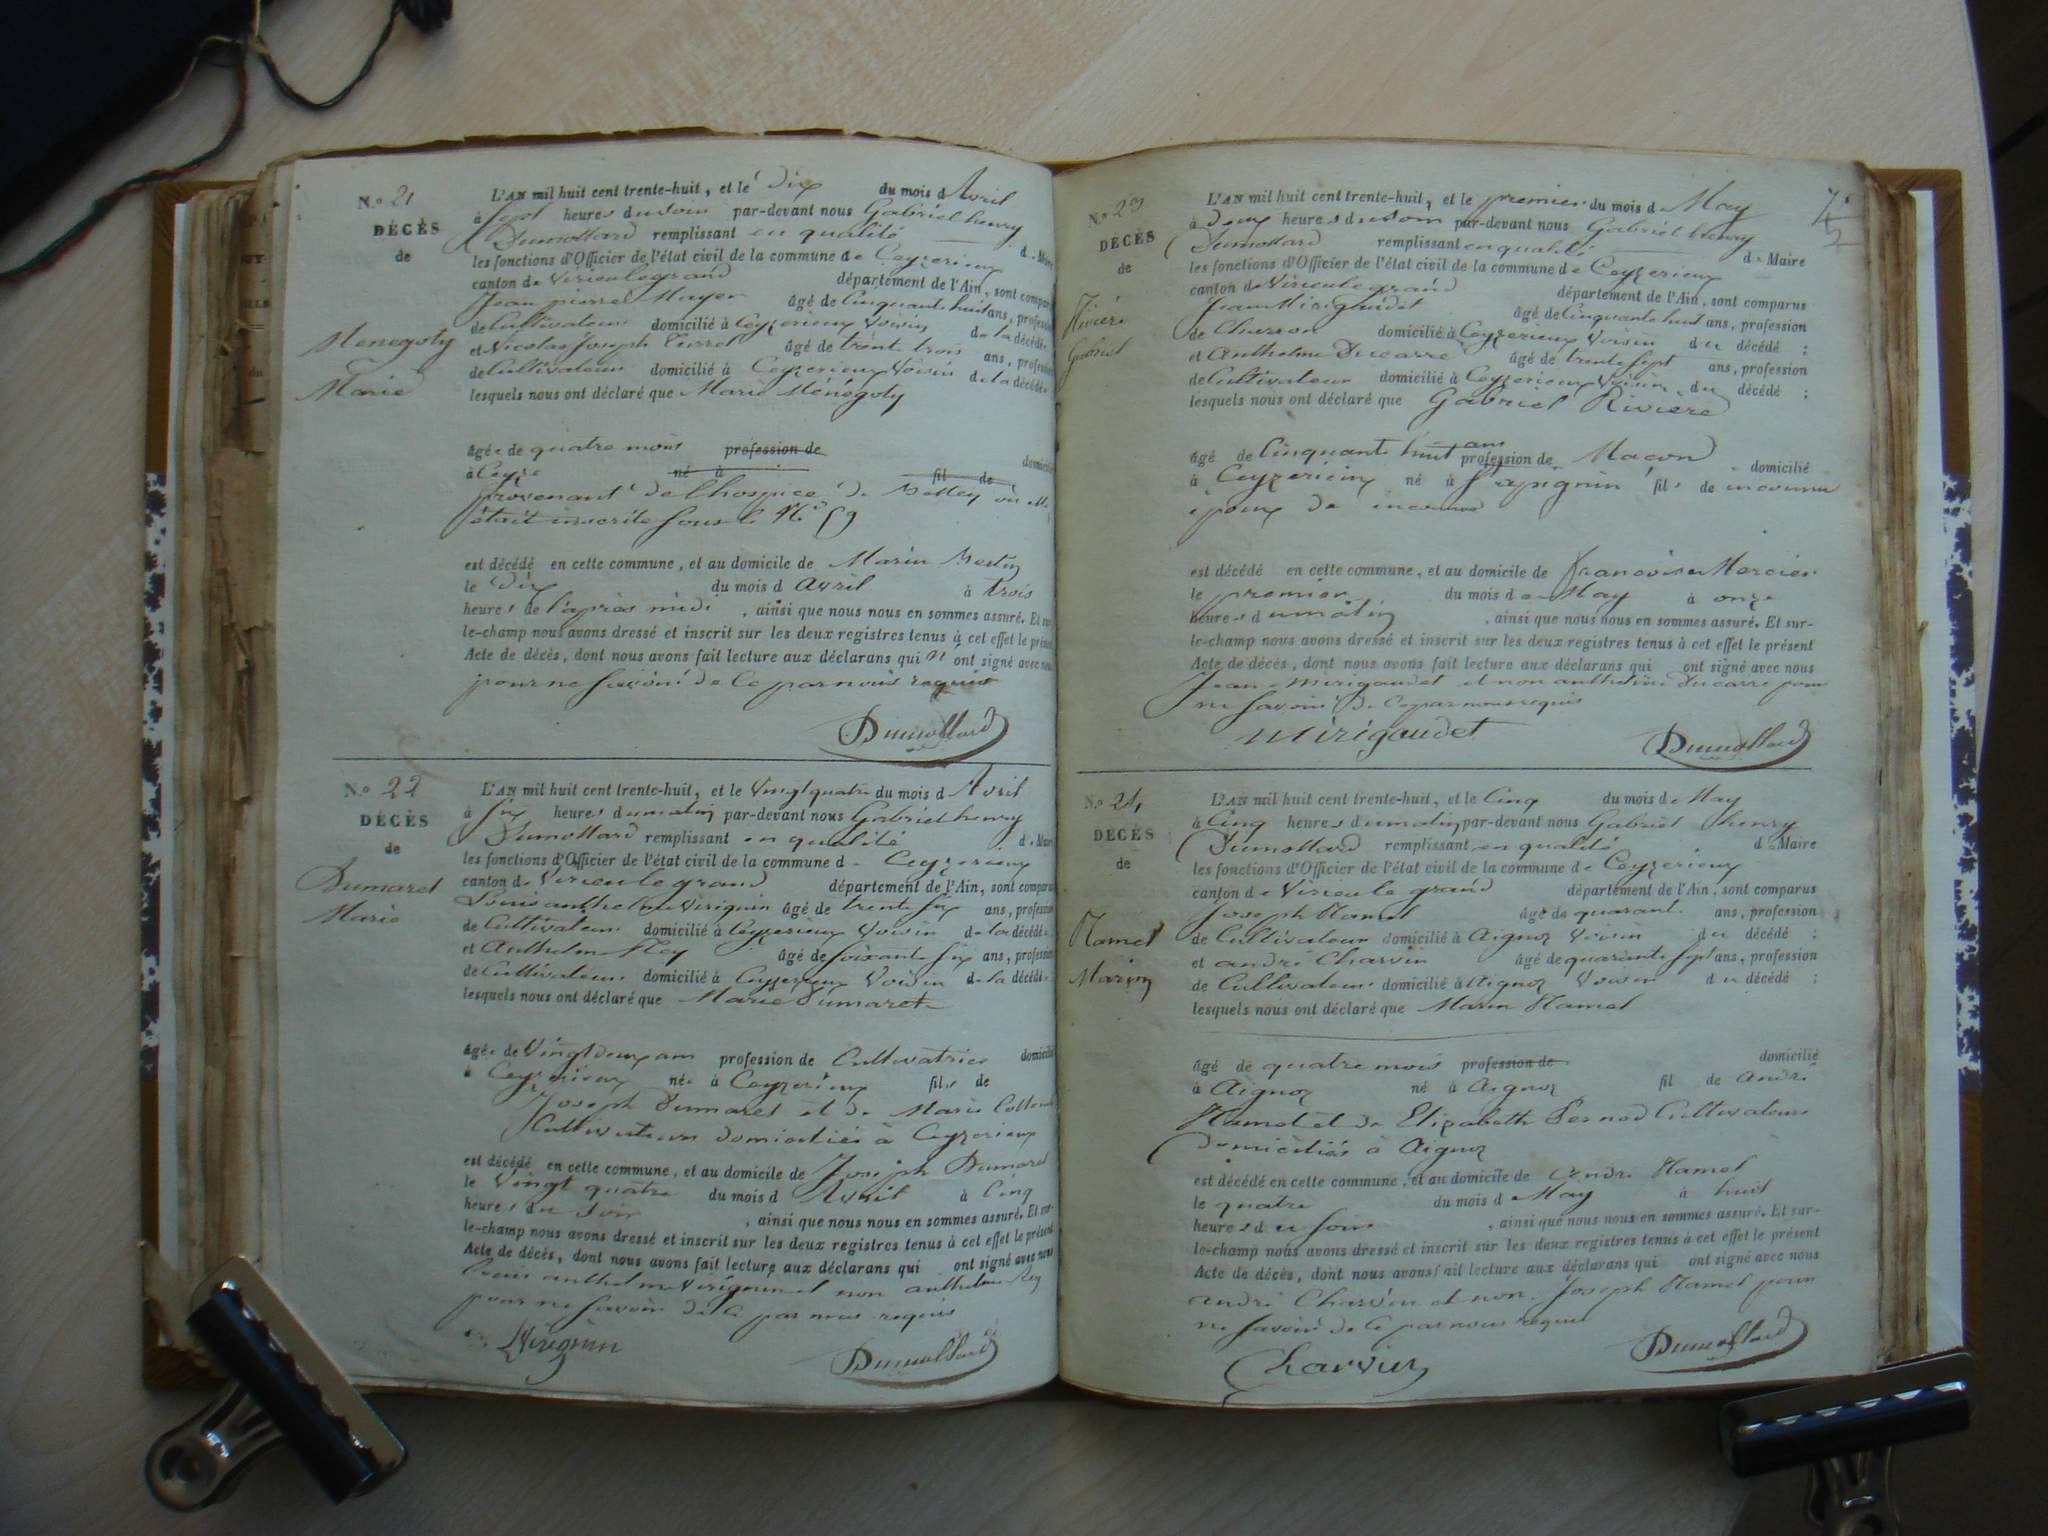 N.o 21
DÉCÈS
de
Menegoty
Marie
L'AN mil huit cent trente-huit, et le Dix du mois d Avril
à Sept heures du soir par-devant nous Gabriel henry
Dumollard remplissant en qualité d e Maire
les fonctions d'Officier de l'état civil de la commune de Ceyzerieux
canton de Virieu le grand département de l'Ain, sont comparus
Jean pierre Mayer âgé de Cinquante huit ans, profession
de Cultivateur domicilié à Ceyzerieux Voisin de la décédée
et Nicolas Joseph âgé de trente trois ans, profession
de Cultivateur domicilié à Ceyzerieux Voisin de la décédée
lesquels nous ont déclaré que Marie Ménégoty
âgée de quatre mois profession de domicilié
à Ceyze né à fil de
provenant de l'hospice de Belley où elle
était inscrite sous le N.o 59
est décédé en cette commune, et au domicile de Marin Bertin
le Dix du mois d avril à trois
heures de l'après midi , ainsi que nous nous en sommes assuré. Et sur-
le-champ nous avons dressé et inscrit sur les deux registres tenus à cet effet le présent
Acte de décès, dont nous avons fait lecture aux déclarans qui n' ont signé avec nous
pour ne savoir de ce par nous requis
Dumollard
N.o 22
DÉCÈS
de
Dumaret
Marie
L'AN mil huit cent trente-huit, et le Vingt quatre du mois d Avril
à six heures du matin par-devant nous Gabriel henry
Dumollard remplissant en qualité d e Maire
les fonctions d'Officier de l'état civil de la commune d e Ceyzerieux
canton de Virieu le grand département de l'Ain, sont comparus
Louis anthelme Virignin âgé de trente six ans, profession
de Cultivateur domicilié à Ceyzerieux Voisin de la décédée
et Anthelme Rey âgé de soixante six ans, profession
de Cultivateur domicilié à Ceyzerieux Voisin de la décédée
lesquels nous ont déclaré que Marie Dumaret
âgée de Vingt deux ans profession de Cultivatrice domicilié
à Ceyzerieux née à Ceyzerieux fille de
Joseph Dumaret et de Marie
Cultivateurs domiciliés à Ceyzerieux
est décédé en cette commune, et au domicile de Joseph Dumaret
le Vingt quatre du mois d Avril à Cinq
heures du soir , ainsi que nous nous en sommes assuré. Et sur-
le-champ nous avons dressé et inscrit sur les deux registres tenus à cet effet le présent
Acte de décès, dont nous avons fait lecture aux déclarans qui ont signé avec nous
Louis anthelme Virignin et non anthelme Rey
pour ne savoir de ce par nous requis
Virignin Dumollard
N.o 23
DÉCÈS
de
Rivière
Gabriel
L'AN mil huit cent trente-huit, et le premier du mois de May
à deux heures du soir par-devant nous Gabriel henry
Dumollard remplissant en qualité d e Maire
les fonctions d'Officier de l'état civil de la commune de Ceyzerieux
canton de Virieu le grand département de l'Ain, sont comparus
Jean Mirigaudet âgé de Cinquante huit ans, profession
de Charron domicilié à Ceyzerieux Voisin du décédé ;
et Anthelme Ducarre âgé de trente sept ans, profession
de Cultivateur domicilié à Ceyzerieux Voisin du décédé ;
lesquels nous ont déclaré que Gabriel Rivière
âgé de Cinquante huit ans profession de Macon domicilié
à Ceyzerieux né à fils de inconnu
époux de inconnue
est décédé en cette commune, et au domicile de françois Mercier
le premier du mois d e May à onze
heures du matin , ainsi que nous nous en sommes assuré. Et sur-
le-champ nous avons dressé et inscrit sur les deux registres tenus à cet effet le présent
Acte de décès, dont nous avons fait lecture aux déclarans qui ont signé avec nous
Jean Mirigaudet et non anthelme Ducarre pour
ne savoir de ce par nous requis
Mirigaudet Dumollard
N.o 24
DÉCÈS
de
Hamel
Marin
L'AN mil huit cent trente-huit, et le Cinq du mois de May
à Cinq heures du matin par-devant nous Gabriel henry
Dumollard remplissant en qualité d e Maire
les fonctions d'Officier de l'état civil de la commune de Ceyzerieux
canton de Virieu le grand département de l'Ain, sont comparus
Joseph Hamel âgé de quarante ans, profession
de Cultivateur domicilié à Aignoz Voisin du décédé ;
et andré Charvin âgé de quarante sept ans, profession
de Cultivateur domicilié à Aignoz Voisin du décédé ;
lesquels nous ont déclaré que Marin Hamel
âgé de quatre mois profession de domicilié
à Aignoz né à Aignoz fil de andré
Hamel et de Elizabeth Pernod Cultivateurs
domiciliés à Aignoz
est décédé en cette commune, et au domicile de andré Hamel
le quatre du mois d e May à huit
heures du soir , ainsi que nous nous en sommes assuré. Et sur-
le-champ nous avons dressé et inscrit sur les deux registres tenus à cet effet le présent
Acte de décès, dont nous avons fait lecture aux déclarans qui ont signé avec nous
andré Charvin et non Joseph Hamel pour
ne savoir de ce par nous requis
Charvin Dumollard